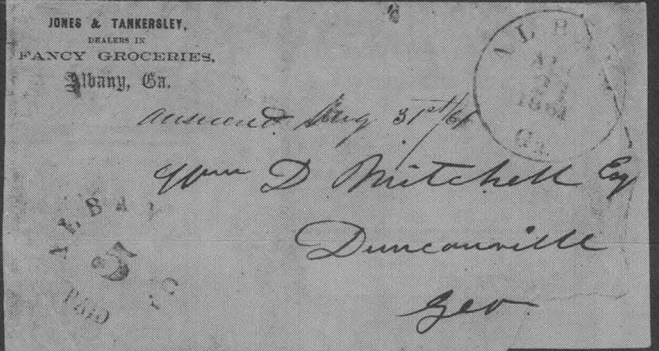 JONES & TANKERSLEY,
DEALERS IN
FANCY GROCERIES,
Albany, Ga.
ALBANY
1861
Ga.
answered Aug 31st/61
Wm D Mitchell Esq
Duncanville
Geo
ALBANY
5
PAID